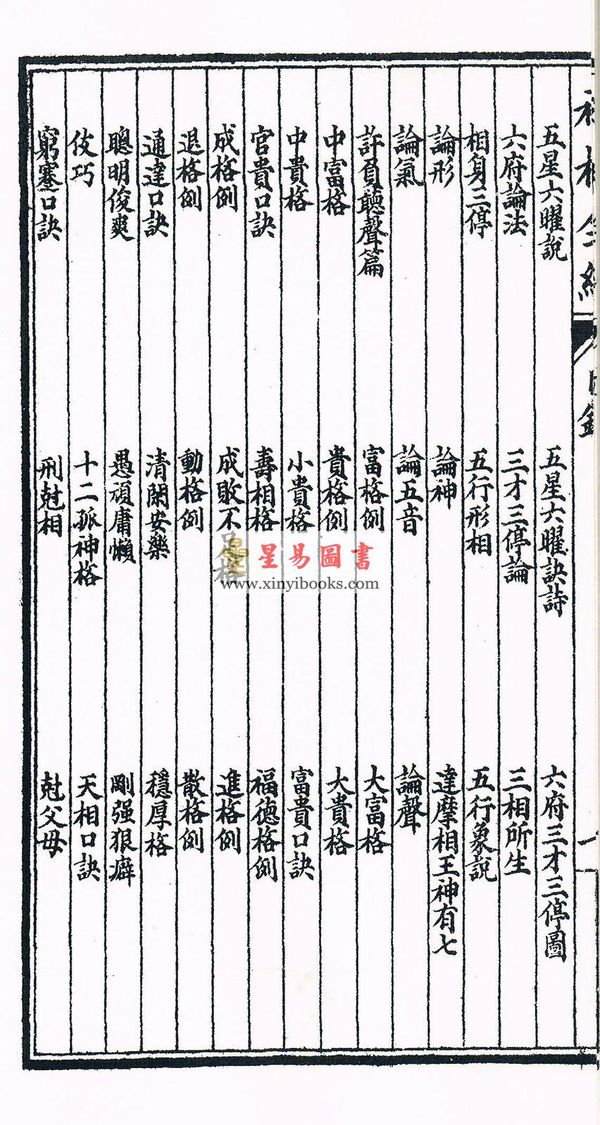 相全編 目錄
五星六曜說 五星六曜訣詩 六府三才三停圖
六府論法 三才三停論 三相所生
相身三停 五行形相 五行象說
論形 論神 達摩相王神有七
論氣 論五音 論聲
許負聽聲篇 富格例 大富格
中富格 貴格例 大貴格
中貴格 小貴格 富貴口訣
官貴口訣 壽相格 福德格例
成格例 成敗不 格 進格例
退格例 動格例 散格例
通達口訣 清閑安樂 穩厚格
聰明俊爽 愚頑庸懶 剛强狠癖
伎巧 十二孤神格 天相口訣
窮蹇口訣 刑尅相 尅父母
星易圖書
www.xinyibooks.com